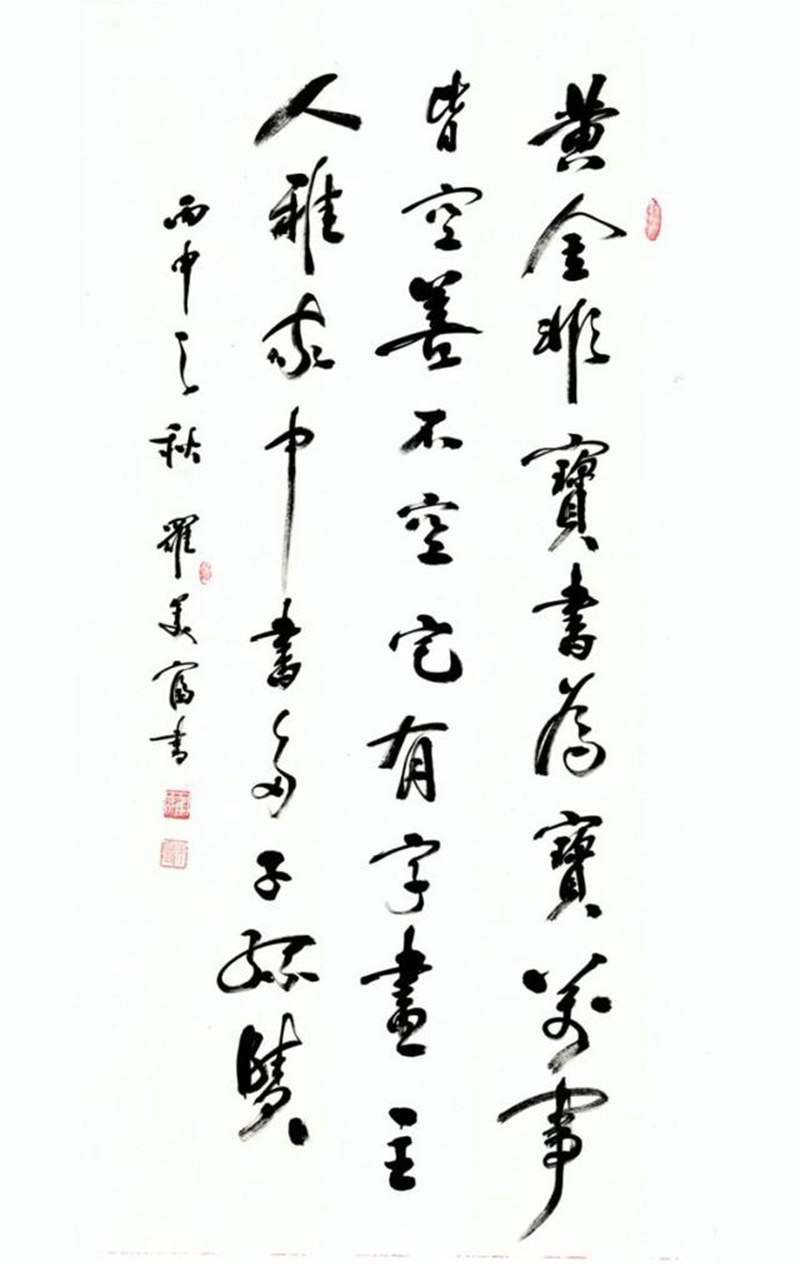 黄金非寶書為寶萬事
皆空善不空宅有字畫主
人雅家中書多子孫賢
丙申之秋 羅美富書